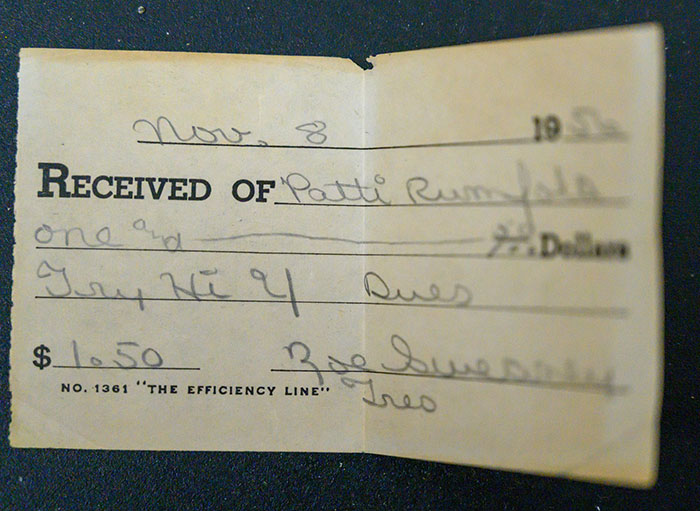 Nov. 8 1950
RECEIVED OF Patti Rumfola
one and 50/.. Dollars
Try Hi Y Dues
$ 1.50 Zoe Swearney
NO. 1361 "THE EFFICIENCY LINE" Treo